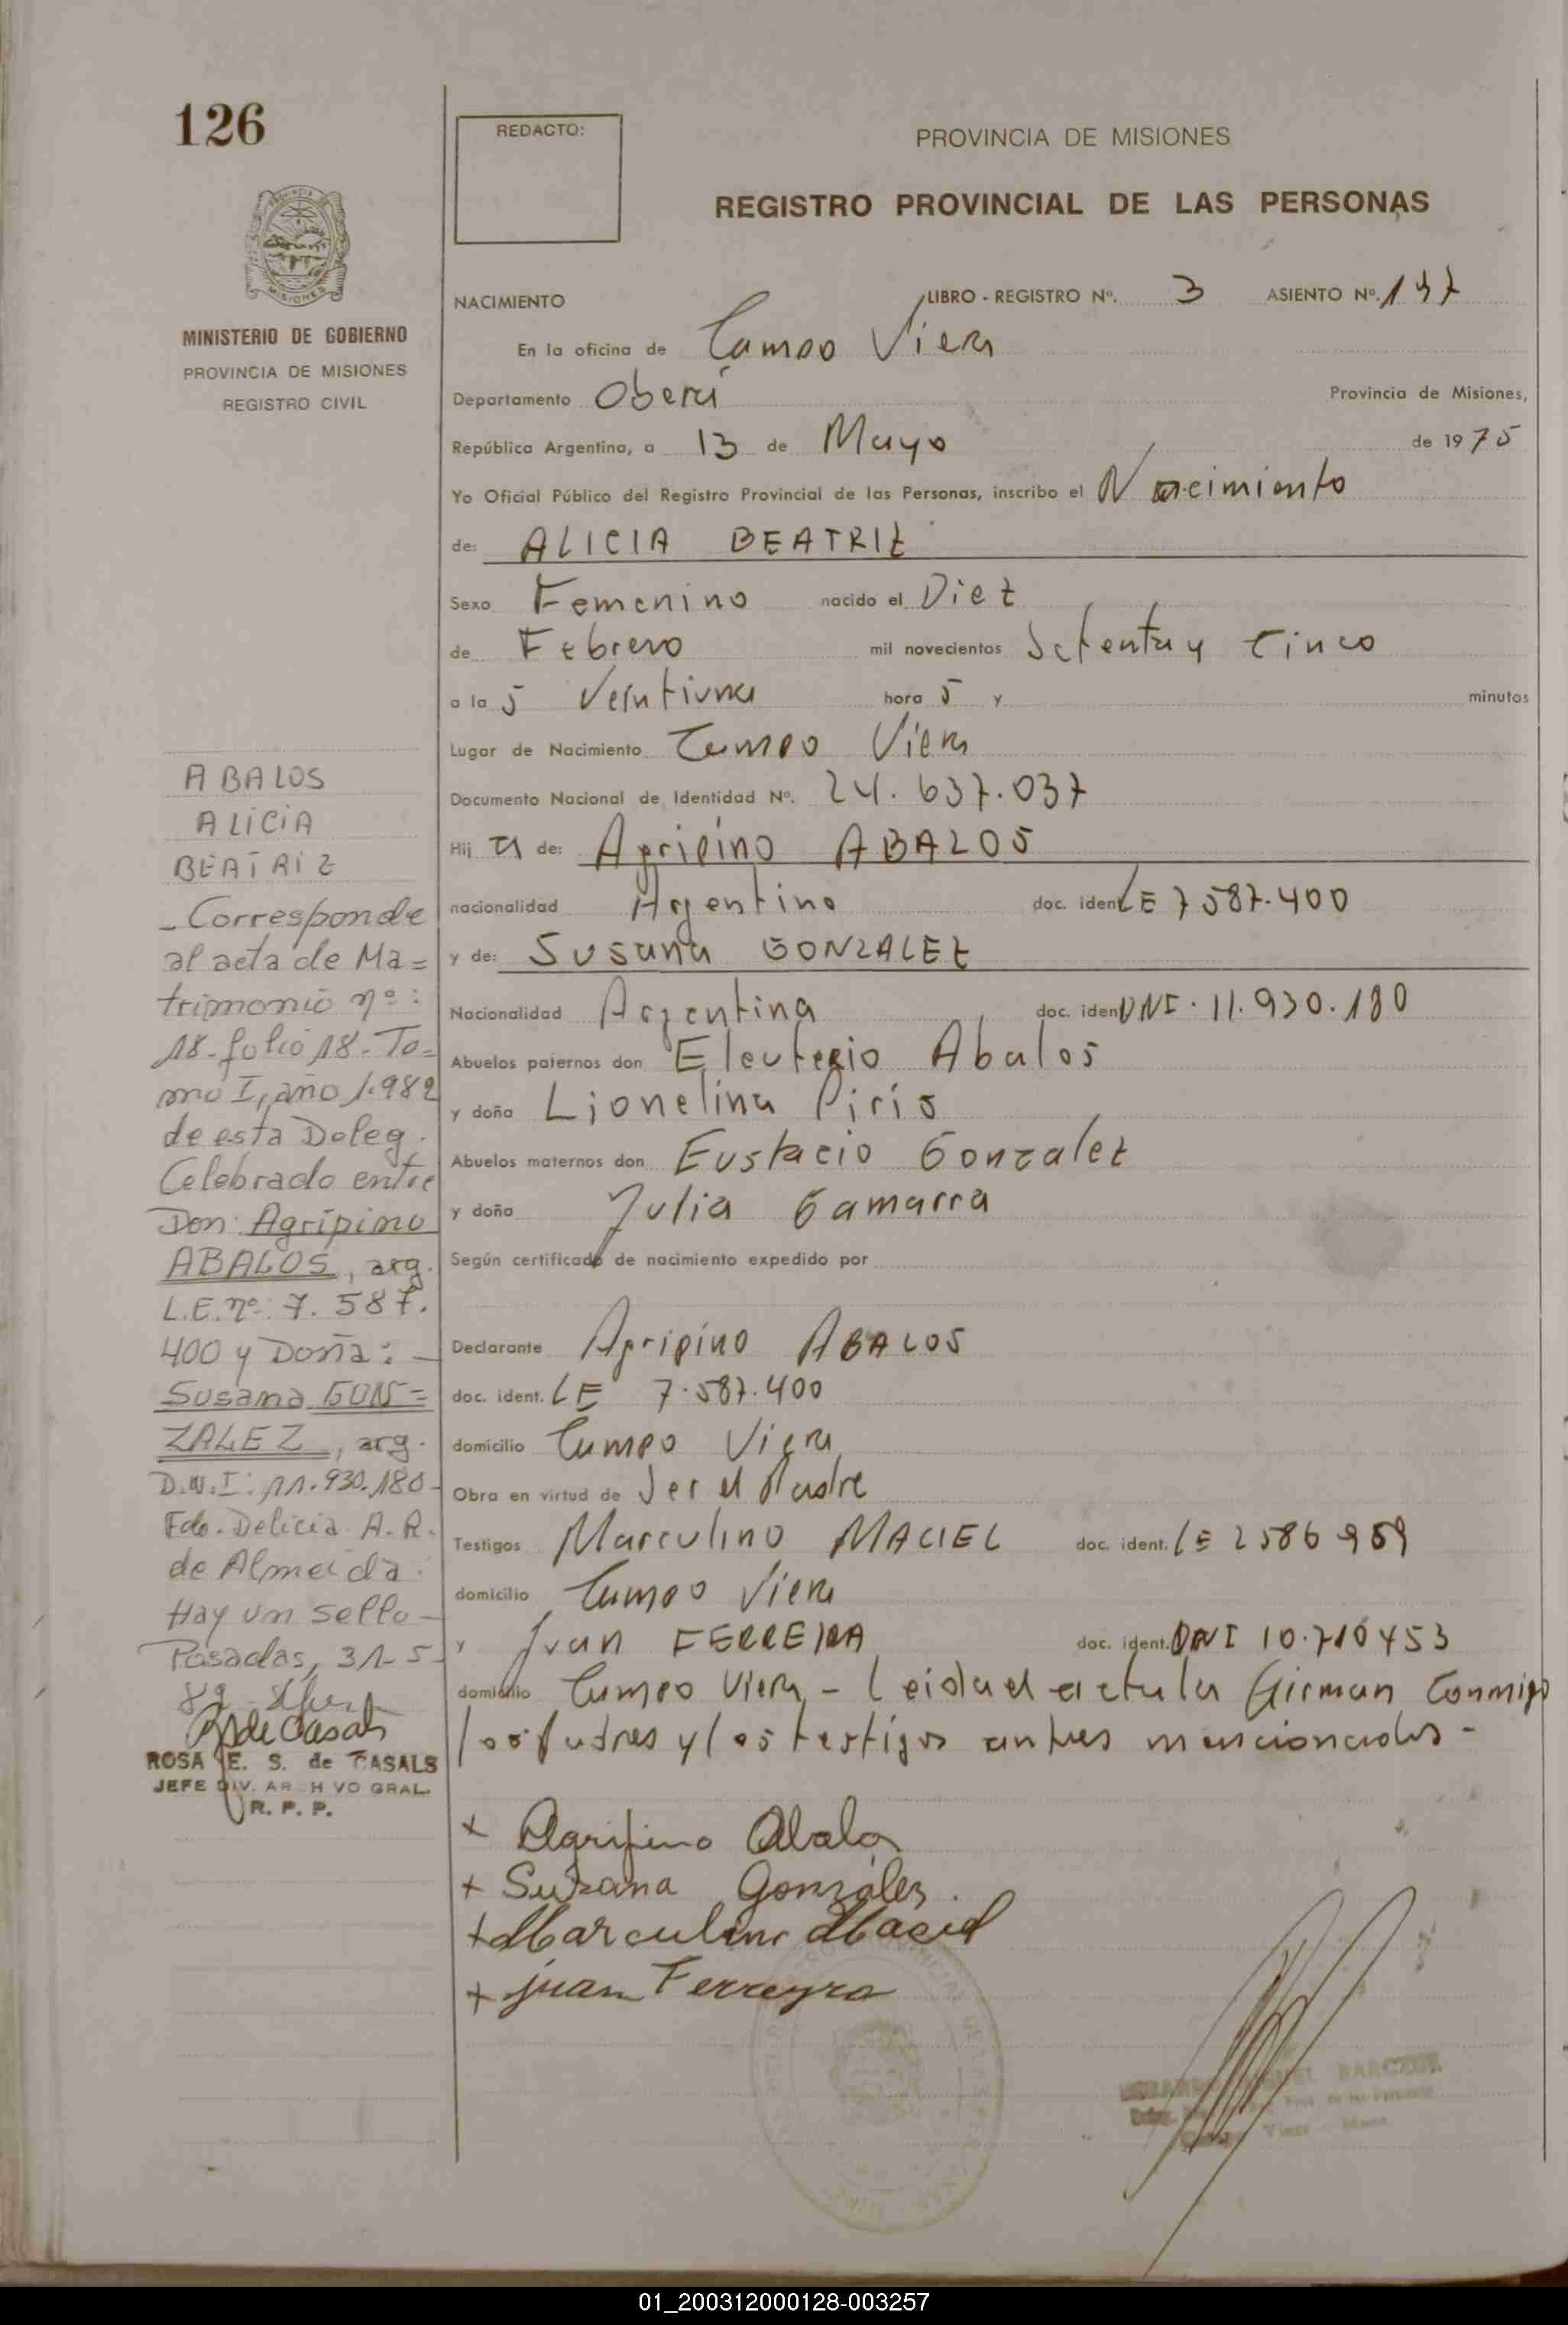 126
REDACTO:
PROVINCIA DE MISIONES
REGISTRO PROVINCIAL DE LAS PERSONAS
MISIONES
MINISTERIO DE GOBIERNO
PROVINCIA DE MISIONES
REGISTRO CIVIL
NACIMIENTO LIBRO - REGISTRO Nº. 3 ASIENTO Nº. 197
En la oficina de Campo Viera
Departamento Oberá Provincia de Misiones,
República Argentina, a 13 de Mayo de 1975
Yo Oficial Público del Registro Provincial de las Personas, inscribo el Nacimiento
de: ALICIA BEATRIZ
Sexo Femenino nacido el Diez
de Febrero mil novecientos Setenta y Cinco
a la s Veintiuna hora s y minutos
Lugar de Nacimiento Campo Viera
Documento Nacional de Identidad Nº. 24.637.037
Hij a de: Agripino ABALOS
nacionalidad Argentino doc. ident LE 7587.400
y de: Susana GONZALEZ
Nacionalidad Argentina doc. iden DNI. 11.930.180
Abuelos paternos don Eleuterio Abalos
y doña Lionelina Piris
Abuelos maternos don Eustacio Gonzalez
y doña Julia Gamarra
Según certificado de nacimiento expedido por
Declarante Agripino ABALOS
doc. ident. LE 7.587.400
domicilio Campo Viera
Obra en virtud de Ser el Padre
Testigos Marculino MACIEL doc. ident. LE 2586959
domicilio Campo Viera
y Juan FERREIRA doc. ident. DNI 10.710453
domicilio Campo Viera - Leida el acta la firman Conmigo
los padres y los testigos antes mencionados -
ABALOS
ALICIA
BEATRIZ
- Corresponde
al acta de Ma=
trimonio nº:
18-folio 18-To=
mo I, año 1.982
de esta Deleg.
Celebrado entre
Don: Agripino
ABALOS, arg.
L.E. nº: 7.587.
400 y Doña: -
Susana GON=
ZALEZ, arg.
D.N.I: 11.930.180-
Fdo. Delicia A.R.
de Almeida.
Hay un sello-
Posadas, 31-5-
89
R de Casals
ROSA E. S. de CASALS
JEFE DIV. ARCHIVO GRAL.
R. P. P.
x Agripino Abalos
+ Suzana Gonzáles.
+ Marculino Maciel
+ juan Ferreyra
01_200312000128-003257